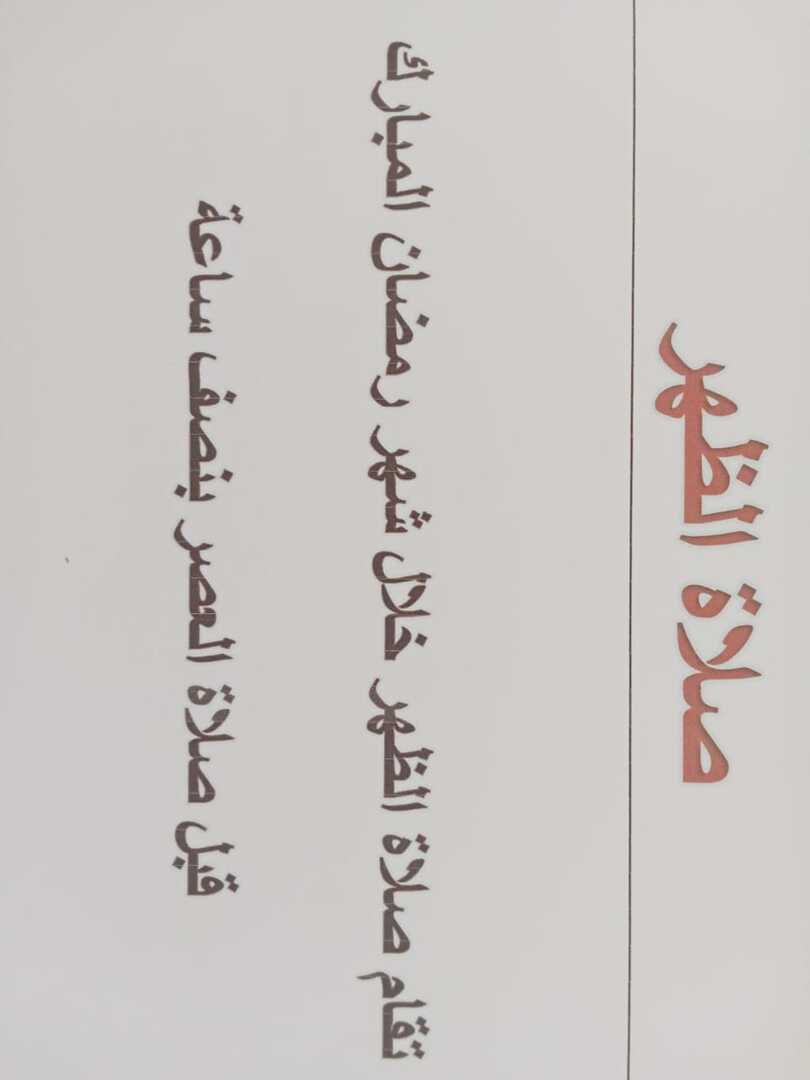 صلاة الظهر
تقام صلاة الظهر خلال شهر رمضان المبارك
قبل صلاة العصر بنصف ساعة